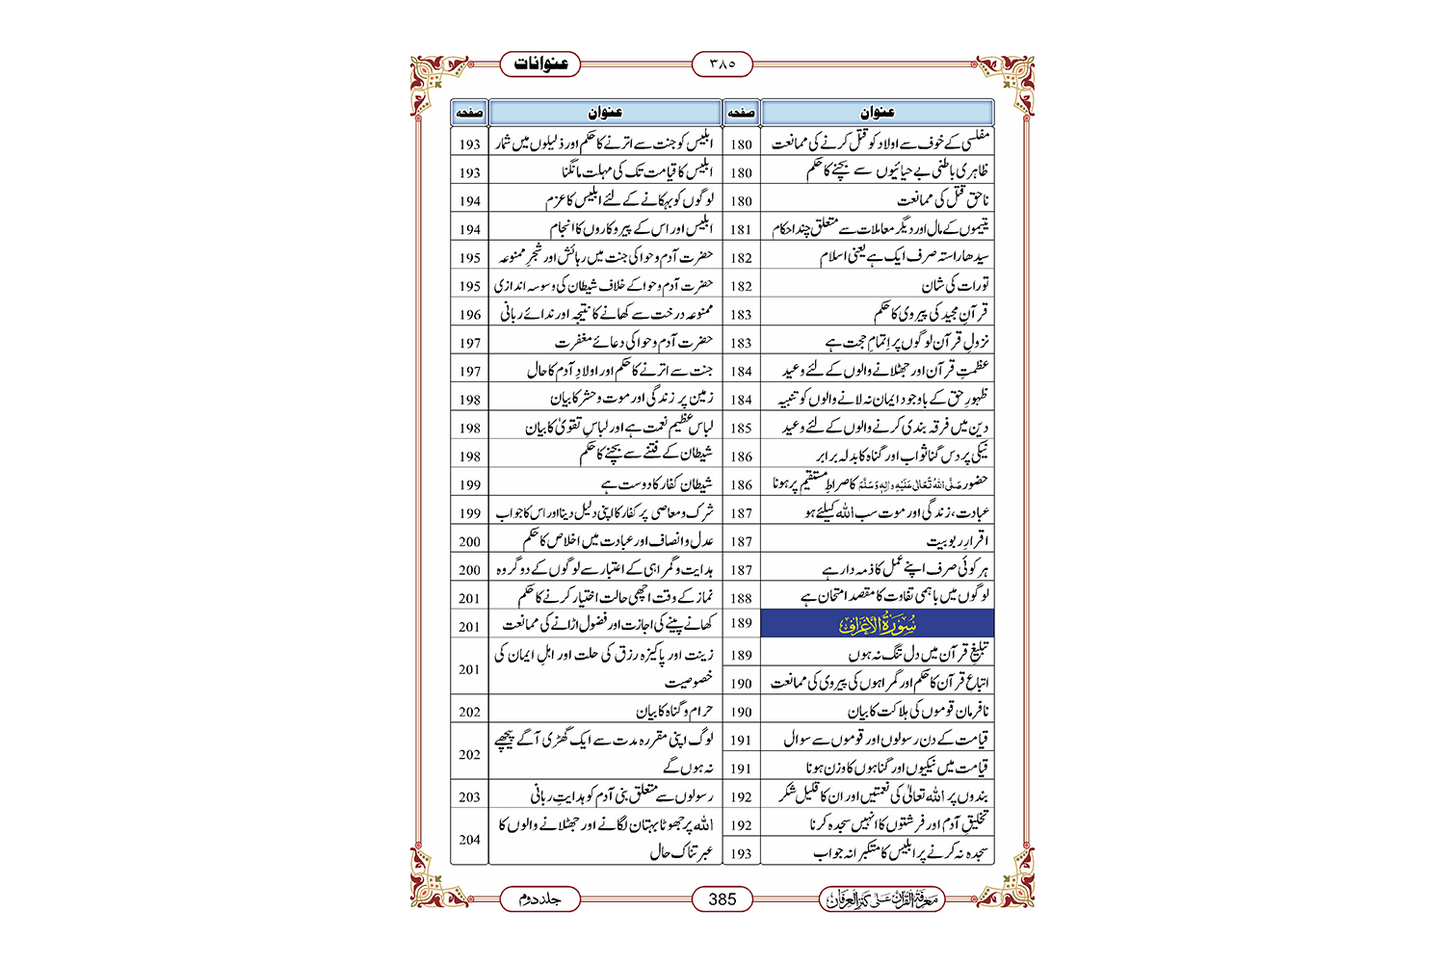 عنوانات
۳۸۵
عنوان صفحہ
مفلسی کے خوف سے اولاد کو قتل کرنے کی ممانعت 180
ظاہری باطنی بے حیائیوں سے بچنے کا حکم 180
ناحق قتل کی ممانعت 180
یتیموں کے مال اور دیگر معاملات سے متعلق چند احکام 181
سیدھا راستہ صرف ایک ہے یعنی اسلام 182
تورات کی شان 182
قرآنِ مجید کی پیروی کا حکم 183
نزولِ قرآن لوگوں پر اِتمامِ حجت ہے 183
عظمتِ قرآن اور جھٹلانے والوں کے لئے وعید 184
ظہورِ حق کے باوجود ایمان نہ لانے والوں کو تنبیہ 184
دین میں فرقہ بندی کرنے والوں کے لئے وعید 185
نیکی پر دس گنا ثواب اور گناہ کا بدلہ برابر 186
حضور صَلَّی اللہُ تَعَالٰی عَلَیْہِ وَاٰلِہٖ وَسَلَّمَ کا صراطِ مستقیم پر ہونا 186
عبادت، زندگی اور موت سب اللہ کیلئے ہو 187
اقرارِ ربوبیت 187
ہر کوئی صرف اپنے عمل کا ذمہ دار ہے 187
لوگوں میں باہمی تفاوت کا مقصد امتحان ہے 188
سُوْرَۃُ الْاَعْرَاف 189
تبلیغِ قرآن میں دل تنگ نہ ہوں 189
اتباعِ قرآن کا حکم اور گمراہوں کی پیروی کی ممانعت 190
نافرمان قوموں کی ہلاکت کا بیان 190
قیامت کے دن رسولوں اور قوموں سے سوال 191
قیامت میں نیکیوں اور گناہوں کا وزن ہونا 191
بندوں پر اللہ تعالیٰ کی نعمتیں اور ان کا قلیل شکر 192
تخلیقِ آدم اور فرشتوں کا انہیں سجدہ کرنا 192
سجدہ نہ کرنے پر ابلیس کا متکبرانہ جواب 193
عنوان صفحہ
ابلیس کو جنت سے اترنے کا حکم اور ذلیلوں میں شمار 193
ابلیس کا قیامت تک کی مہلت مانگنا 193
لوگوں کو بہکانے کے لئے ابلیس کا عزم 194
ابلیس اور اس کے پیروکاروں کا انجام 194
حضرت آدم و حوا کی جنت میں رہائش اور شجرِ ممنوعہ 195
حضرت آدم و حوا کے خلاف شیطان کی وسوسہ اندازی 195
ممنوعہ درخت سے کھانے کا نتیجہ اور ندائے ربانی 196
حضرت آدم و حوا کی دعائے مغفرت 197
جنت سے اترنے کا حکم اور اولادِ آدم کا حال 197
زمین پر زندگی اور موت و حشر کا بیان 198
لباس عظیم نعمت ہے اور لباسِ تقویٰ کا بیان 198
شیطان کے فتنے سے بچنے کا حکم 198
شیطان کفار کا دوست ہے 199
شرک و معاصی پر کفار کا اپنی دلیل دینا اور اس کا جواب 199
عدل و انصاف اور عبادت میں اخلاص کا حکم 200
ہدایت و گمراہی کے اعتبار سے لوگوں کے دو گروہ 200
نماز کے وقت اچھی حالت اختیار کرنے کا حکم 201
کھانے پینے کی اجازت اور فضول اڑانے کی ممانعت 201
زینت اور پاکیزہ رزق کی حلت اور اہلِ ایمان کی
خصوصیت 201
حرام و گناہ کا بیان 202
لوگ اپنی مقررہ مدت سے ایک گھڑی آگے پیچھے
نہ ہوں گے 202
رسولوں سے متعلق بنی آدم کو ہدایتِ ربانی 203
اللہ پر جھوٹا بہتان لگانے اور جھٹلانے والوں کا
عبرتناک حال 204
معرفۃ القرآن علیٰ کنز العرفان
385
جلد دوم